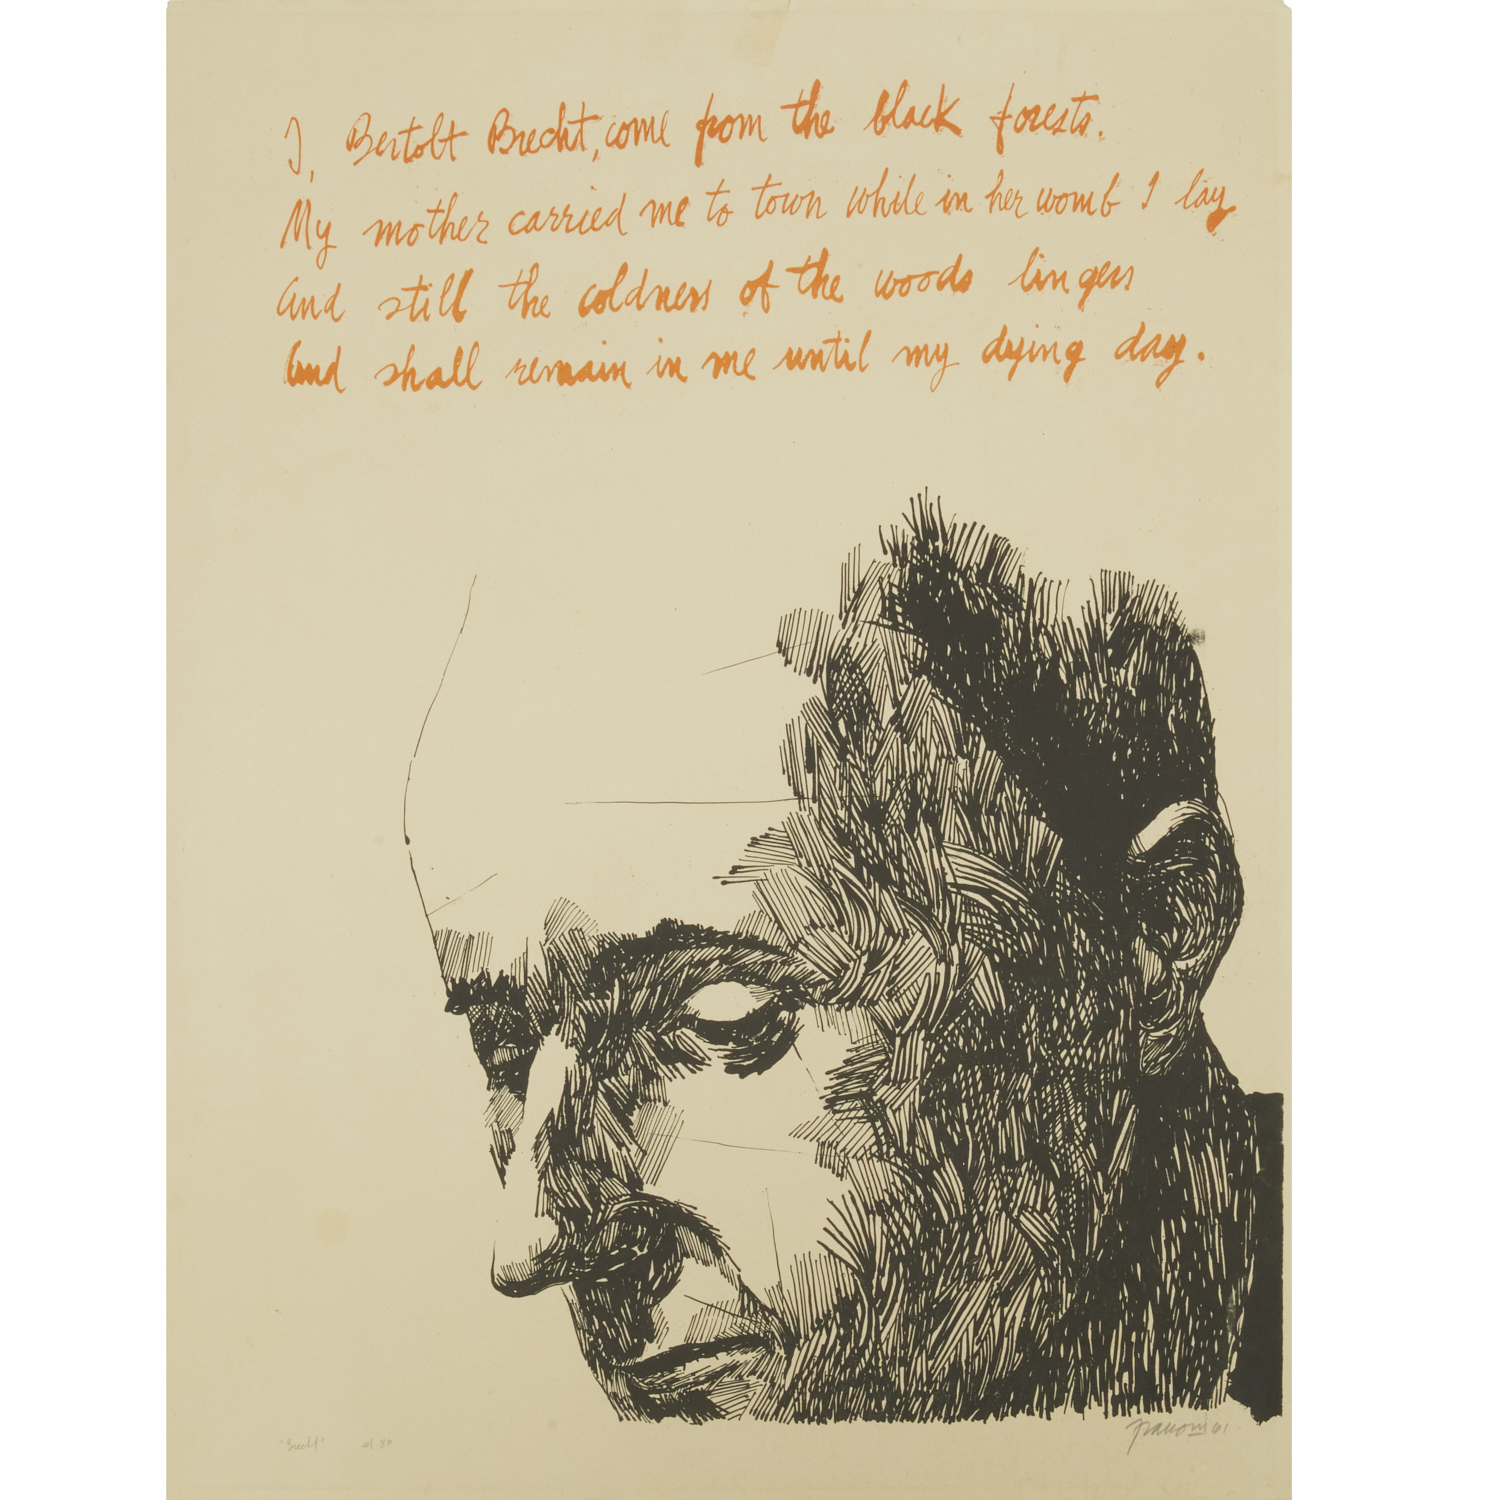 I, Bertolt Brecht, come from the black forests.
My mother carried me to town while in her womb I lay
And still the coldness of the woods lingers
And shall remain in me until my dying day.
"Brecht" ed. 80
Frasconi 61